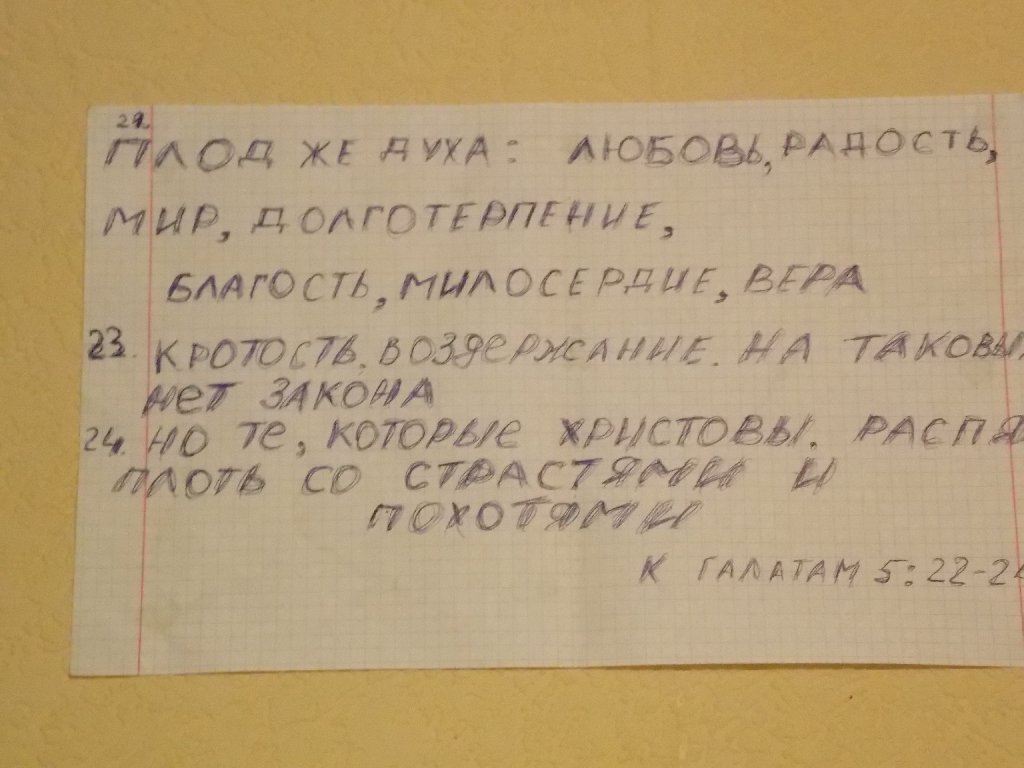 22.
ПЛОД ЖЕ ДУХА: ЛЮБОВЬ, РАДОСТЬ,
МИР, ДОЛГОТЕРПЕНИЕ,
БЛАГОСТЬ, МИЛОСЕРДИЕ, ВЕРА
23. КРОТОСТЬ. ВОЗДЕРЖАНИЕ. НА ТАКОВЫ
НЕТ ЗАКОНА
24. НО ТЕ, КОТОРЫЕ ХРИСТОВЫ. РАСПЯ
ПЛОТЬ СО СТРАСТЯМИ И
ПОХОТЯМИ
К ГАЛАТАМ 5:22-24